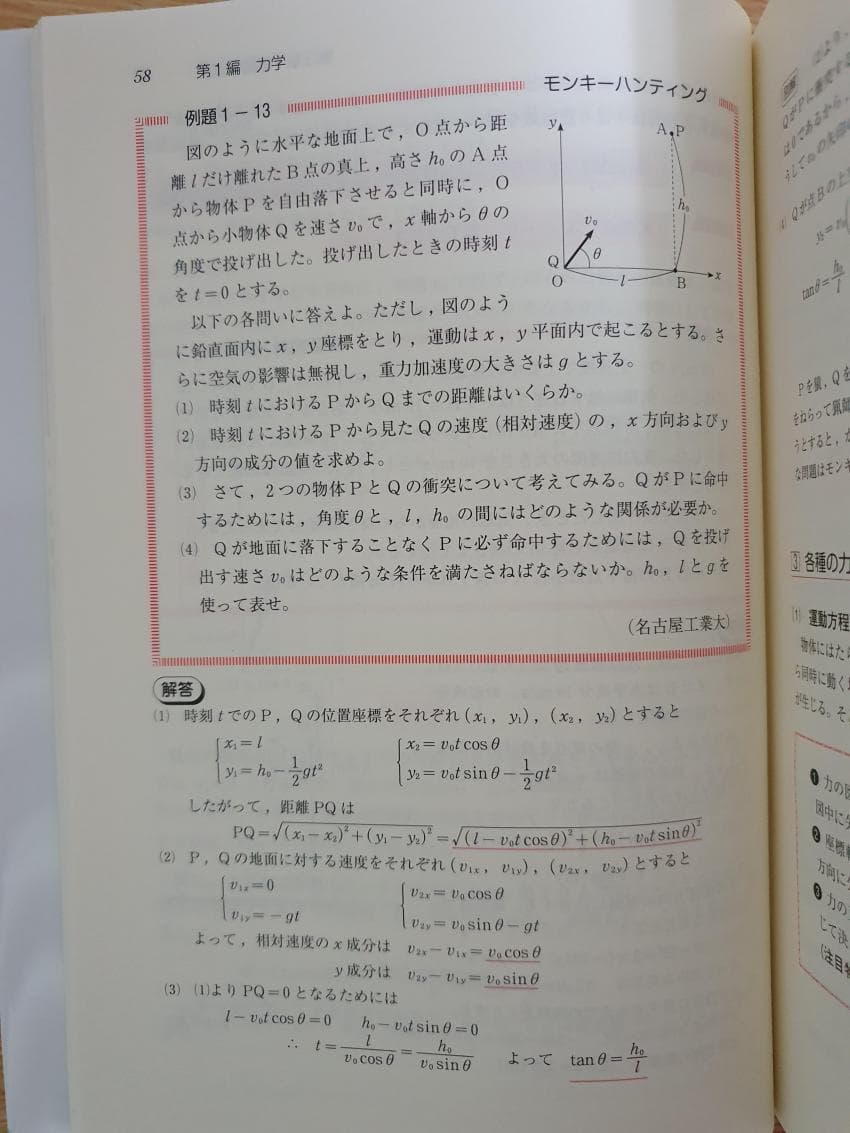 58 第1編 力学
例題1－13 モンキーハンティング
図のように水平な地面上で，O点から距
離lだけ離れたB点の真上，高さh₀のA点
から物体Pを自由落下させると同時に，O
点から小物体Qを速さv₀で，x軸からθの
角度で投げ出した。投げ出したときの時刻t
をt=0とする。
y
A P
h₀
v₀
θ
Q
O
l
B
x
以下の各問いに答えよ。ただし，図のよう
に鉛直面内にx，y座標をとり，運動はx，y平面内で起こるとする。さ
らに空気の影響は無視し，重力加速度の大きさはgとする。
(1) 時刻tにおけるPからQまでの距離はいくらか。
(2) 時刻tにおけるPから見たQの速度（相対速度）の，x方向およびy
方向の成分の値を求めよ。
(3) さて，2つの物体PとQの衝突について考えてみる。QがPに命中
するためには，角度θと，l，h₀の間にはどのような関係が必要か。
(4) Qが地面に落下することなくPに必ず命中するためには，Qを投げ
出す速さv₀はどのような条件を満たさねばならないか。h₀，lとgを
使って表せ。
（名古屋工業大）
解答
(1) 時刻tでのP，Qの位置座標をそれぞれ(x₁，y₁)，(x₂，y₂)とすると
x₁=l x₂=v₀t cosθ
y₁=h₀−1/2gt² y₂=v₀t sinθ−1/2gt²
したがって，距離PQは
PQ=√(x₁−x₂)²+(y₁−y₂)²=√(l−v₀t cosθ)²+(h₀−v₀t sinθ)²
(2) P，Qの地面に対する速度をそれぞれ(v₁ₓ，v₁y)，(v₂ₓ，v₂y)とすると
v₁ₓ=0 v₂ₓ=v₀cosθ
v₁y=−gt v₂y=v₀sinθ−gt
よって，相対速度のx成分は v₂ₓ−v₁ₓ=v₀cosθ
y成分は v₂y−v₁y=v₀sinθ
(3) (1)よりPQ=0となるためには
l−v₀t cosθ=0 h₀−v₀t sinθ=0
∴ t=l/v₀cosθ=h₀/v₀sinθ よって tanθ=h₀/l
QがPに
は0であるから，
(4) Qが点Bの上
tanθ=h₀/l
Pを猿，Qを
をねらって猟師
うとすると，
な問題はモンキ
3 各種の力
(1) 運動方程
物体にはた
ら同時に動く
が生じる。そ
❶ 力の図
図中に
❷ 座標軸
方向に
❸ 力の
じて決